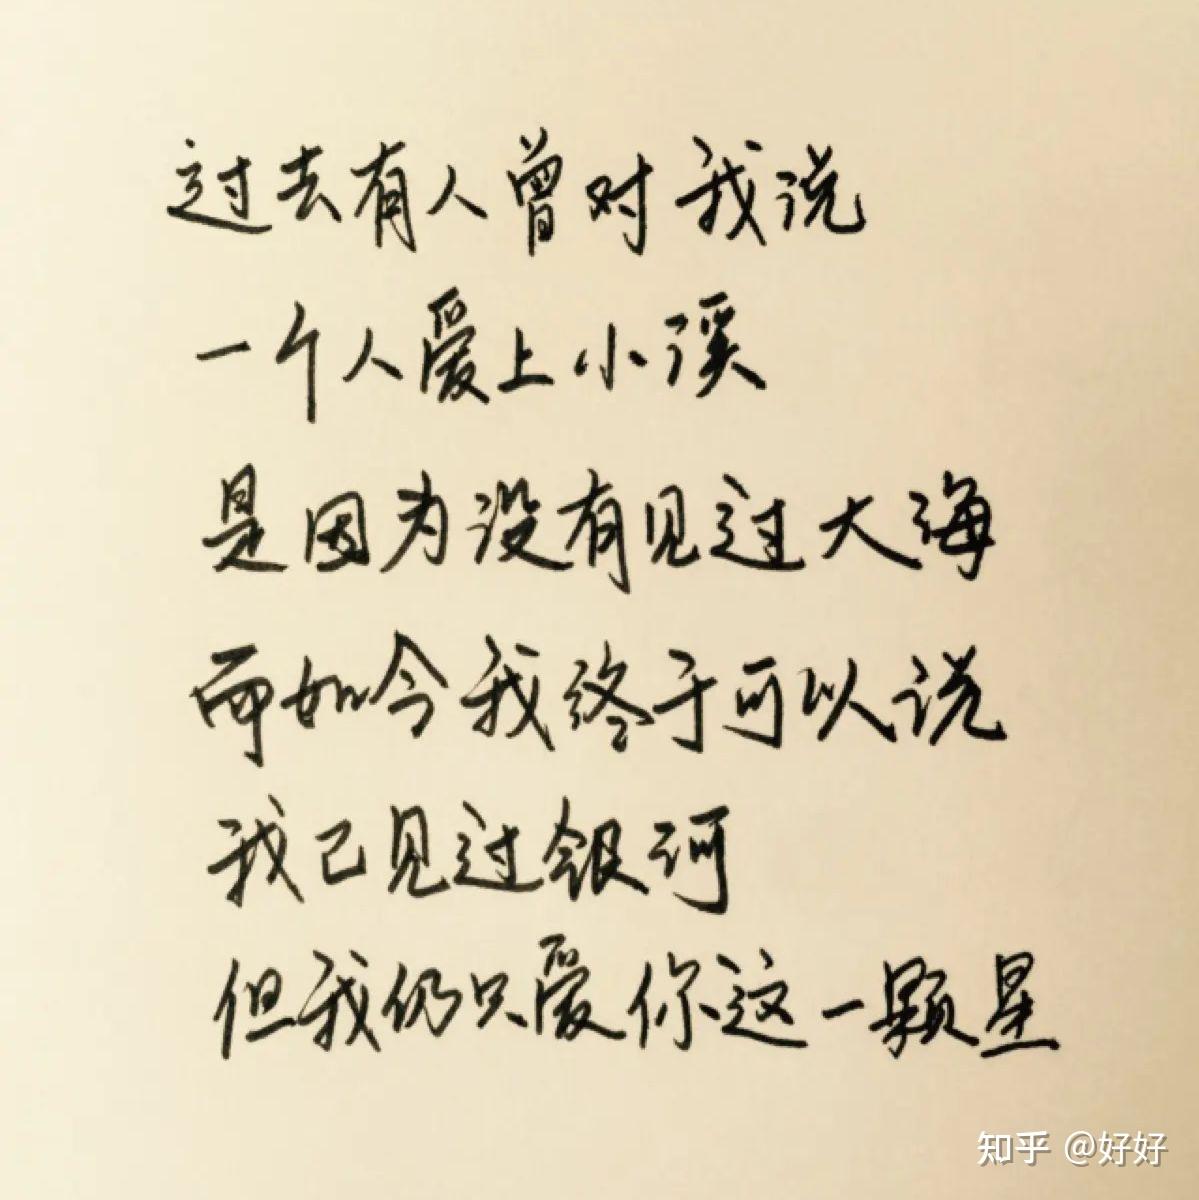 过去有人曾对我说
一个人爱上小溪
是因为没有见过大海
而如今我终于可以说
我已见过银河
但我仍只爱你这一颗星
知乎 @好好